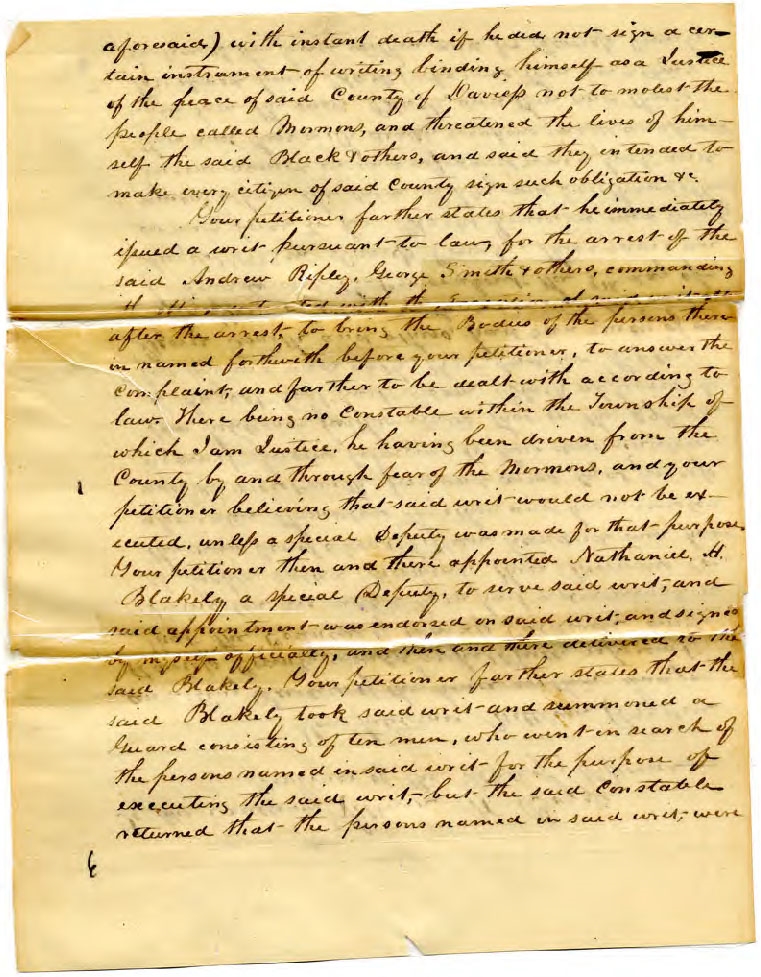 aforesaid) with instant death if he did not sign a cer-
tain instrument of writing binding himself as a Justice
of the peace of said County of Daviess not to molest the
people called Mormons, and threatened the lives of him-
self the said Black & others, and said they intended to
make every citizen of said County sign such obligation &c.
Your petitioner farther states that he immediately
issued a writ pursuant to law, for the arrest of the
said Andrew Ripley, George Smith & others, commanding
with the
after the arrest, to bring the Bodies of the persons there-
in named forthwith before your petitioner, to answer the
complaint, and farther to be dealt with according to
law. There being no Constable within the Township of
which I am Justice, he having been driven from the
County by and through fear of the Mormons, and your
petitioner believing that said writ would not be ex-
ecuted, unless a special Deputy was made for that purpose.
Your petitioner then and there appointed Nathaniel H.
Blakely a special Deputy, to serve said writ, and
said appointment was endorsed on said writ, and signed
by myself officially, and then and there delivered to the
said Blakely. Your petitioner farther states that the
said Blakely took said writ and summoned a
Guard consisting of ten men, who went in search of
the persons named in said writ for the purpose of
executing the said writ, but the said Constable
returned that the persons named in said writ, were